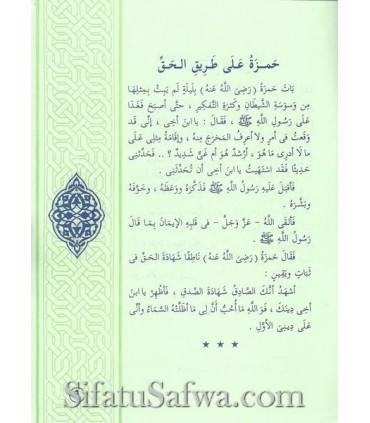 حَمـزَةُ عَلَى طَرِيقِ الـحَقِّ
بَاتَ حَمْزَةُ ( رَضِيَ اللَّهُ عَنْهُ ) بِلَيلَةٍ لَم يَبِتْ بِمِثلِهَا
مِن وَسوَسَةِ الشَّيطَانِ وَكَثرَةِ التَّفكِيرِ ، حتَّى أَصبَحَ فَغَدَا
عَلَى رَسُولِ اللَّهِ ﷺ ، فَقَالَ : يا ابنَ أخِى ، إنِّى قَد
وَقَعتُ فى أمرٍ ولا أَعرِفُ المَخرَجَ مِنهُ ، وإقَامَةُ مِثلِى عَلَى
مَا لَا أدرِى مَا هُوَ ، أَرُشدٌ هُوَ أم غَىٌّ شَدِيدٌ ؟ .. فَحَدِّثنِى
حَدِيثًا فَقَد اشتَهَيتُ يا ابنَ أخِى أن تُحَدِّثَنِى .
فَأقبَلَ عَلَيهِ رَسُولُ اللَّهِ ﷺ فَذَكَّرَهُ وَوَعَظَهُ ، وَخَوَّفَهُ
وَبَشَّرَهُ .
فَألقَى اللَّهُ - عَزَّ وَجَلَّ - فى قَلبِهِ الإيمَانَ بِمَا قَالَ
رَسُولُ اللَّهِ ﷺ .
فَقَالَ حَمزَةُ ( رَضِيَ اللَّهُ عَنْهُ ) نَاطِقًا شَهَادَةَ الحَقِّ فى
ثَبَاتٍ وَيَقِينٍ :
أشهَدُ أنَّكَ الصَّادِقُ شَهَادَةَ الصِّدقِ ، فَأظهِرْ يا ابنَ
أخِى دِينَكَ ، فَوَ اللَّهِ مَا أُحِبُّ أنَّ لِى مَا أظَلَّتهُ السَّمَاءُ وَأنِّى
عَلَى دِينِىَ الأوَّلِ .
* * *
SifatuSafwa.com